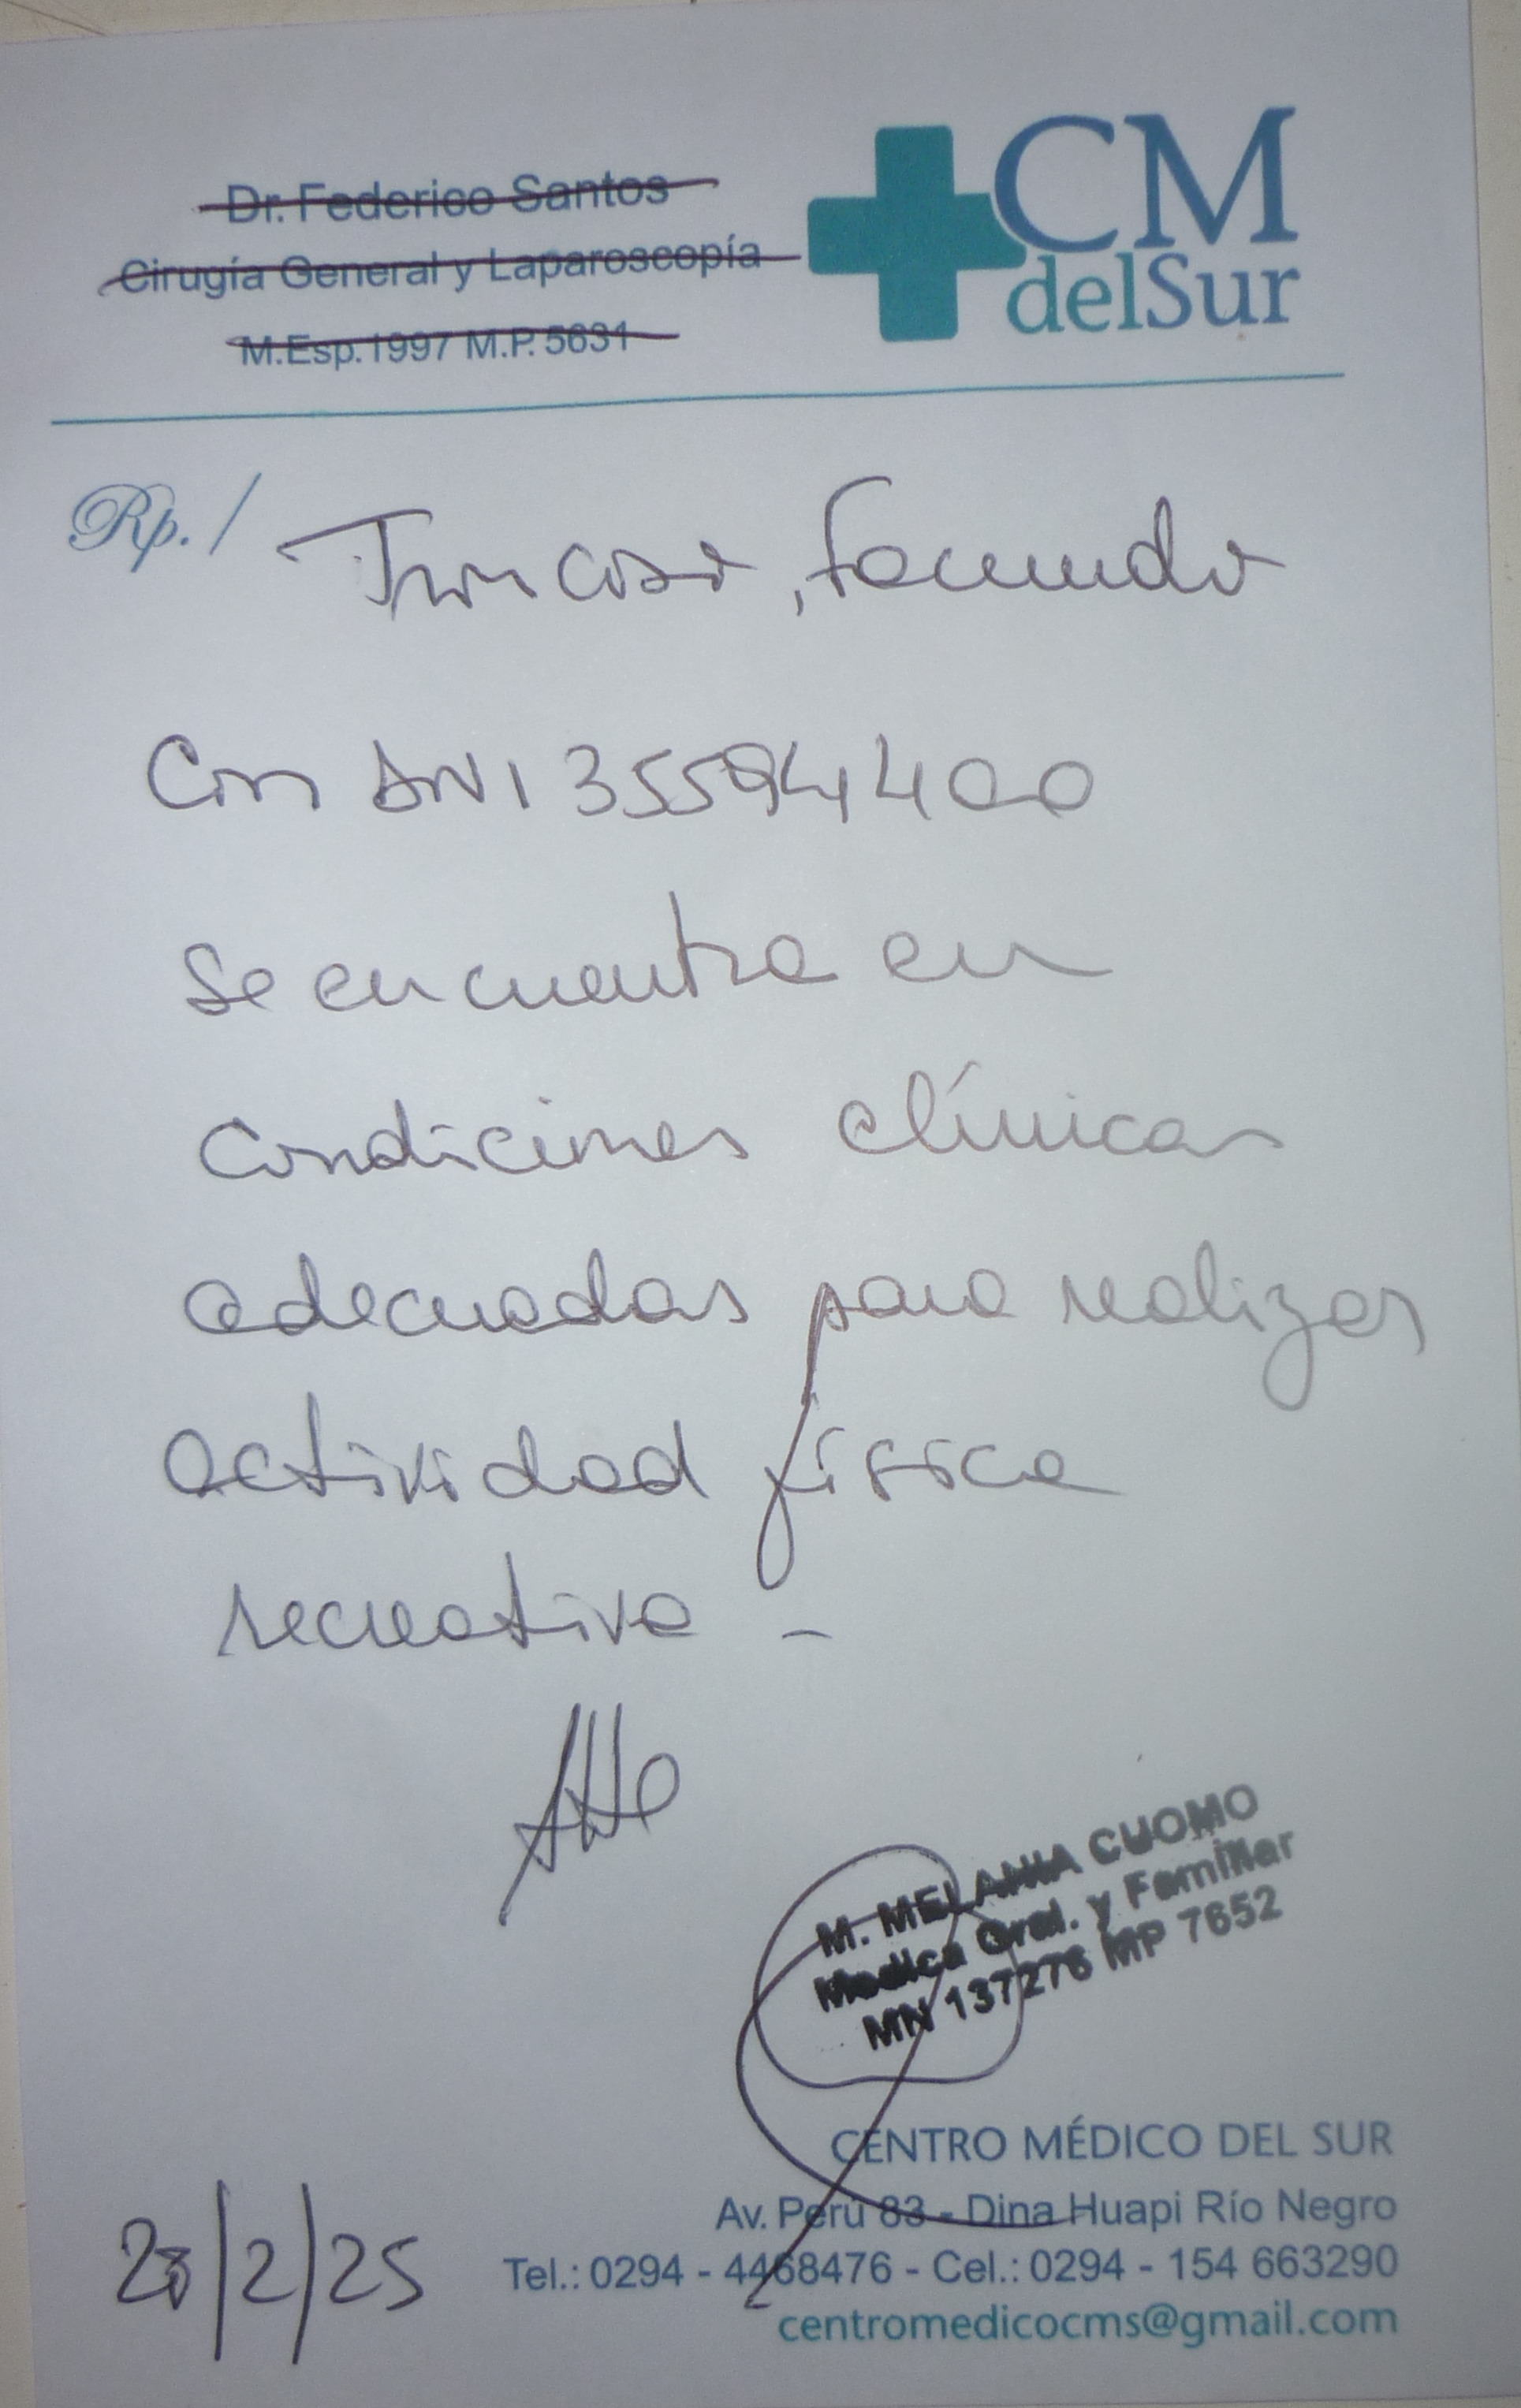 Dr. Federico Santos
Cirugía General y Laparoscopía
M.Esp.1997 M.P. 5631
CM
delSur
Rp./ Troncoso, Facundo
Con DNI 35594400
Se encuentra en
Condiciones clínicas
adecuadas para realizar
actividad física
recreativa -
Atte
M. MELANIA CUOMO
Medica Gral. y Familiar
MN 137276 MP 7652
CENTRO MÉDICO DEL SUR
Av. Perú 83 - Dina Huapi Río Negro
28/2/25
Tel.: 0294 - 4468476 - Cel.: 0294 - 154 663290
centromedicocms@gmail.com